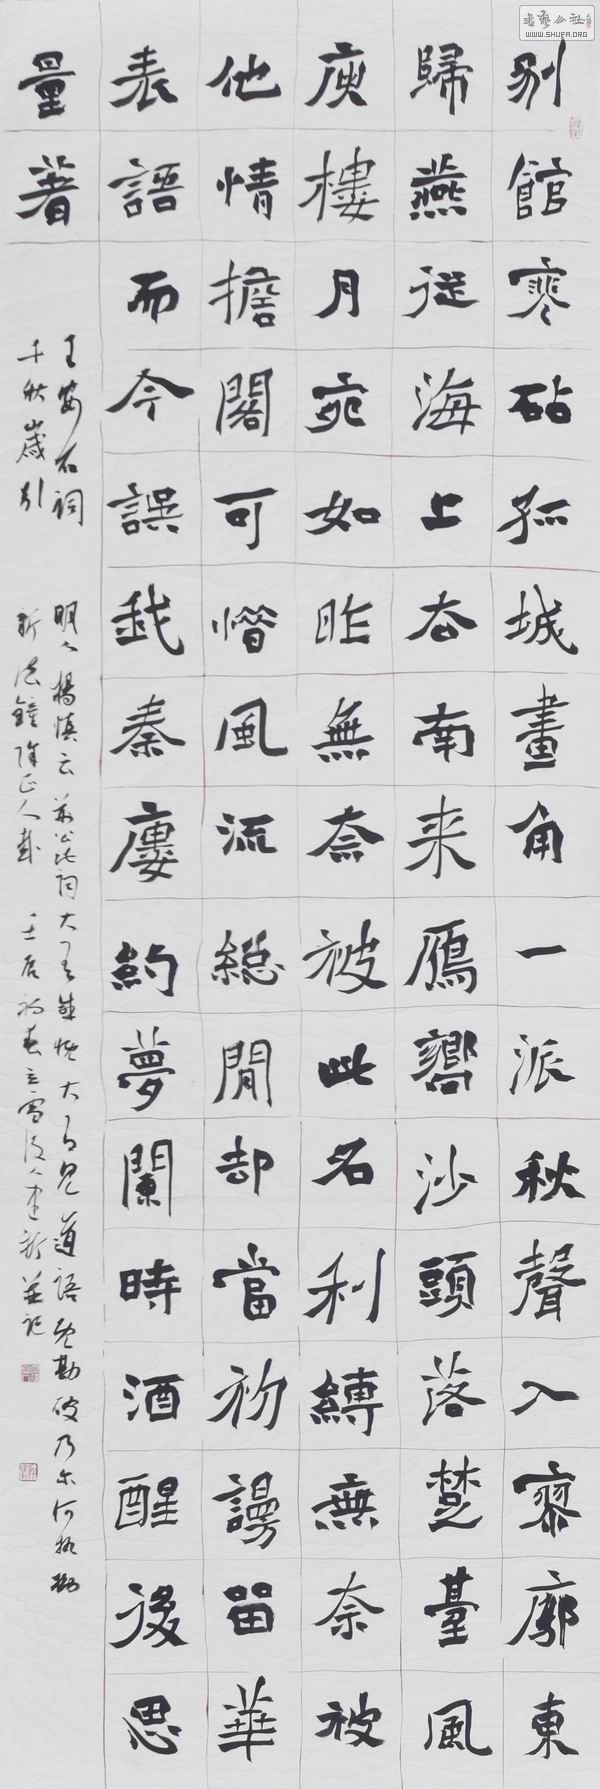 别館寒砧孤城畫角一派秋聲入寥廓東
歸燕從海上去南来鴈嚮沙頭落楚臺風
庾樓月宛如昨無奈被此名利縛無奈被
他情擔閣可惜風流總閒却當初謾留華
表語而今誤我秦廔約夢闌時酒醒後思
量著
王安石词
千秋歲引
明人楊慎云荊公此詞大有感慨大有見道語既勘破乃尔何執拗
新法鏟除正人哉 壬辰初春立雪
並記
書藝公社
WWW.SHUFA.ORG